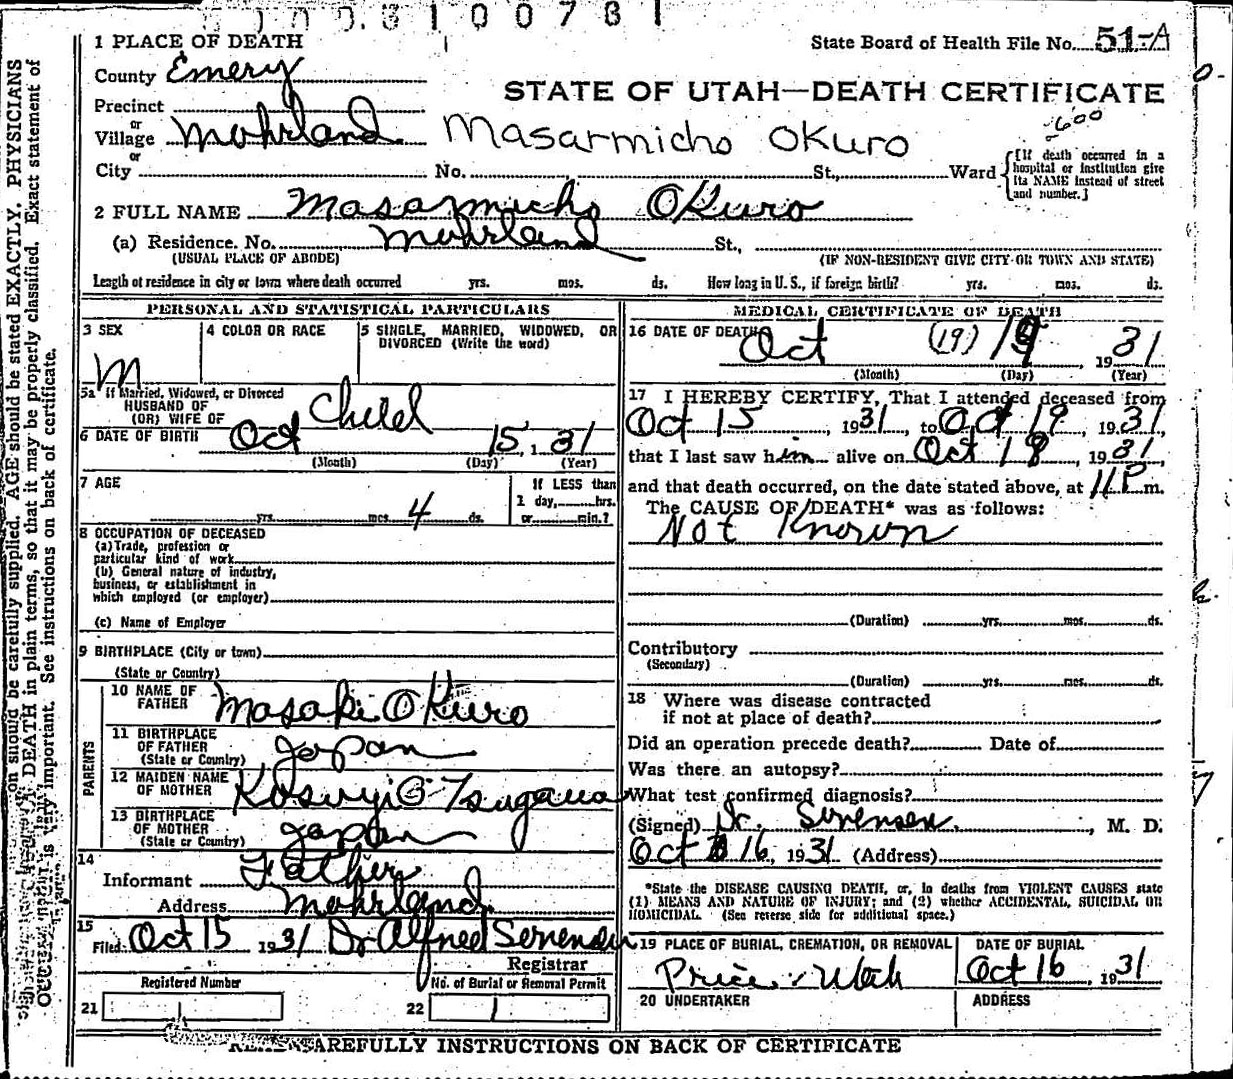 1 PLACE OF DEATH
State Board of Health File No. 51-A
County Emery
STATE OF UTAH—DEATH CERTIFICATE
Precinct
or
Village Mohrland Masarmicho Okuro
600
or
City No. St., Ward
[If death occurred in a hospital or institution give its NAME instead of street and number.]
2 FULL NAME Masarmicho Okuro
(a) Residence. No. Mohrland St.,
(USUAL PLACE OF ABODE) (IF NON-RESIDENT GIVE CITY OR TOWN AND STATE)
Length of residence in city or town where death occurred yrs. mos. ds. How long in U. S., if foreign birth? yrs. mos. ds.
PERSONAL AND STATISTICAL PARTICULARS
3 SEX 4 COLOR OR RACE 5 SINGLE, MARRIED, WIDOWED, OR
DIVORCED (Write the word)
M
5a If Married, Widowed, or Divorced
HUSBAND OF
(OR) WIFE OF
Child
6 DATE OF BIRTH Oct 15, 1 31
(Month) (Day) (Year)
7 AGE
If LESS than
1 day, hrs.
yrs. mos. 4 ds. or min.?
8 OCCUPATION OF DECEASED
(a) Trade, profession or
particular kind of work
(b) General nature of industry,
business, or establishment in
which employed (or employer)
(c) Name of Employer
9 BIRTHPLACE (City or town)
(State or Country)
PARENTS
10 NAME OF
FATHER Masaki Okuro
11 BIRTHPLACE
OF FATHER
(State or Country) Japan
12 MAIDEN NAME
OF MOTHER Tsugawa
13 BIRTHPLACE
OF MOTHER
(State or Country) Japan
14
Informant Father
Address Mohrland
15
Filed Oct 15 1931 Dr Alfred Sorensen
Registrar
Registered Number No. of Burial or Removal Permit
21 22
MEDICAL CERTIFICATE OF DEATH
16 DATE OF DEATH Oct (19) 19 19 31
(Month) (Day) (Year)
17 I HEREBY CERTIFY, That I attended deceased from
Oct 15, 1931, to Oct 19, 1931,
that I last saw him alive on Oct 18, 1931,
and that death occurred, on the date stated above, at 11 P m.
The CAUSE OF DEATH* was as follows:
Not Known
(Duration) yrs. mos. ds.
Contributory
(Secondary)
(Duration) yrs. mos. ds.
18 Where was disease contracted
if not at place of death?
Did an operation precede death? Date of
Was there an autopsy?
What test confirmed diagnosis?
(Signed) Dr. Sorensen, M. D.
Oct 16, 1931 (Address)
*State the DISEASE CAUSING DEATH, or, in deaths from VIOLENT CAUSES state
(1) MEANS AND NATURE OF INJURY; and (2) whether ACCIDENTAL, SUICIDAL OR
HOMICIDAL. (See reverse side for additional space.)
19 PLACE OF BURIAL, CREMATION, OR REMOVAL DATE OF BURIAL
Price, Utah Oct 16, 1931
20 UNDERTAKER ADDRESS
CAREFULLY INSTRUCTIONS ON BACK OF CERTIFICATE
on should be carefully supplied. AGE should be stated EXACTLY. PHYSICIANS
DEATH in plain terms, so that it may be properly classified. Exact statement of
is very important. See instructions on back of certificate.